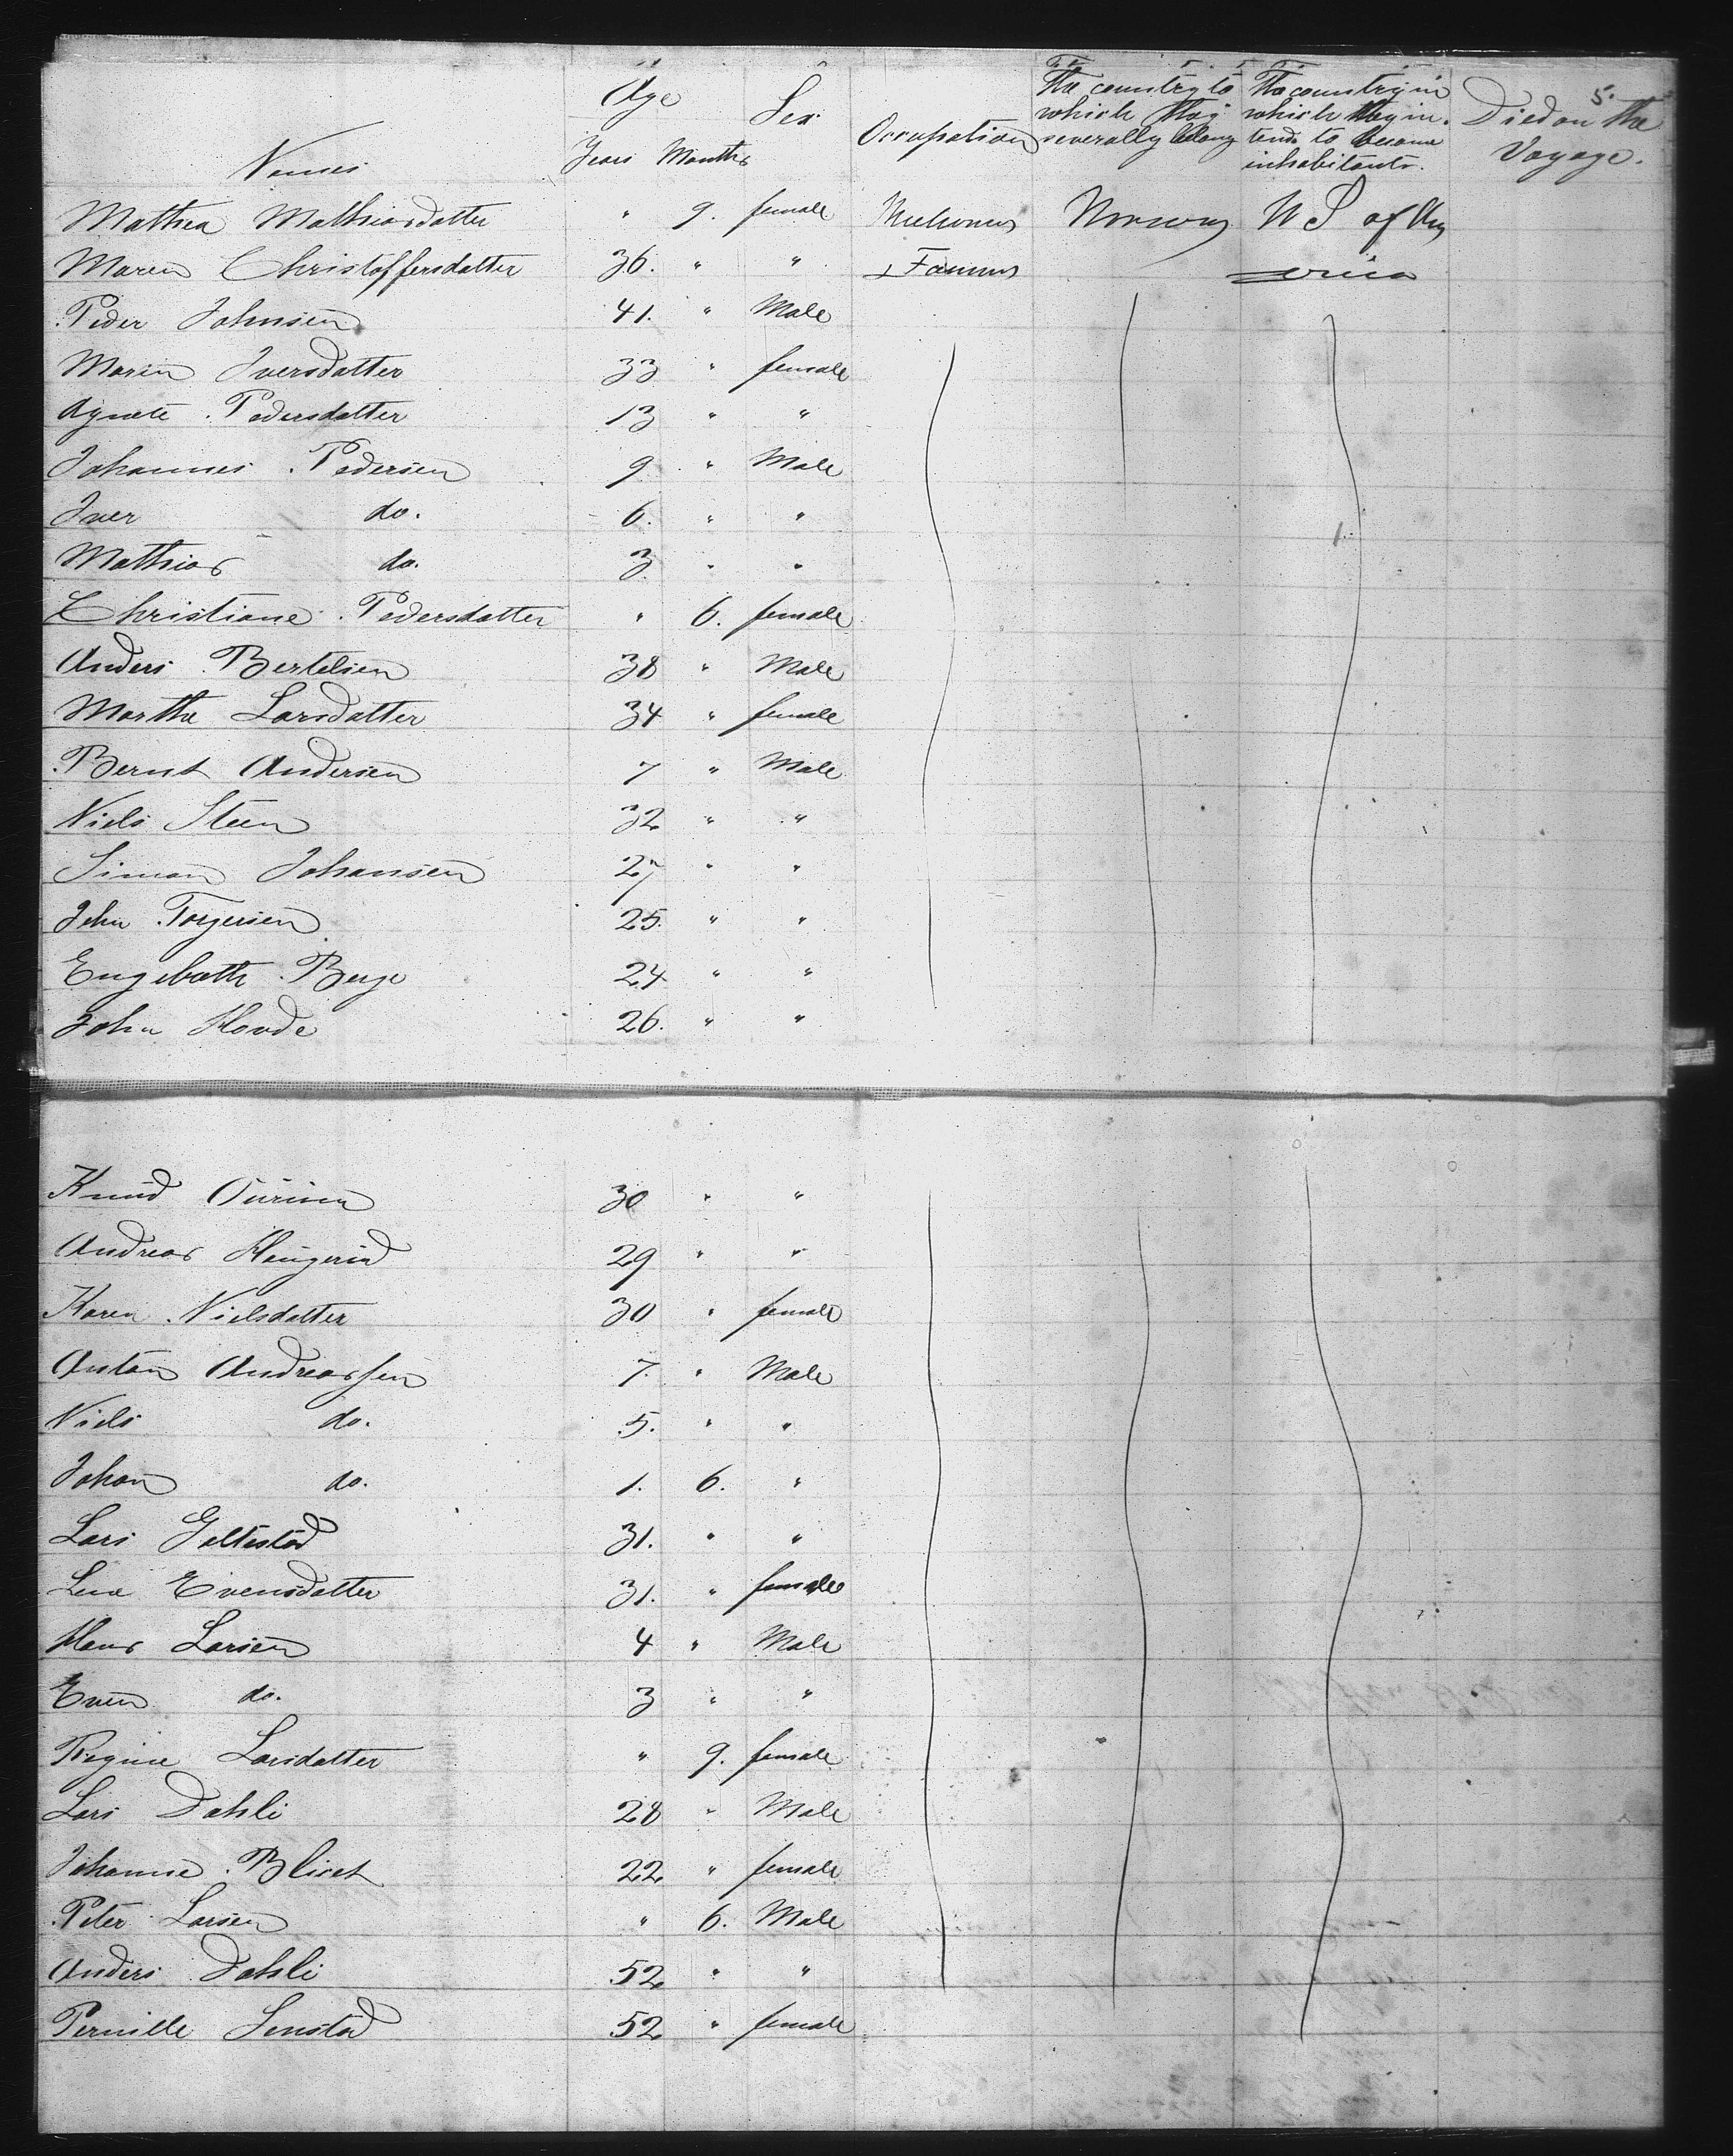 5.
Names Age Years Months Sex Occupation The country to which they severally belong The country in which they intend to become inhabitants. Died on the Voyage.
Mathea Mathiasdatter " 9. female Mechanics Norway U S of Am
Maren Christoffersdatter 36. " " & Farmers erica
Peder Johnsen 41. " Male
Maren Iversdatter 33 " female
Agnete Pedersdatter 13 " "
Johannes Pedersen 9 " Male
Iver do. 6. " "
Mathias do. 3 " "
Christiane Pedersdatter " 6. female
Anders Bertelsen 38 " Male
Marthe Larsdatter 34 " female
Bernt Andersen 7 " Male
Niels Steen 32 " "
Simon Johansen 27 " "
John Torgersen 25. " "
Engebreth Berge 24 " "
John Hovde 26. " "
Knud 30 " "
Andreas Haugerud 29 " "
Karen Nielsdatter 30 " female
Anton Andreassen 7. " Male
Niels do. 5. " "
Johan do. 1. 6. "
Lars Geltestad 31. " "
Lena Evensdatter 31. " female
Hans Larsen 4 " Male
Even do. 3 " "
Regine Larsdatter " 9. female
Lars Dahli 28 " Male
Johanne 22 " female
Peter Larsen " 6. Male
Anders Dahli 52 " "
Pernille 52 " female